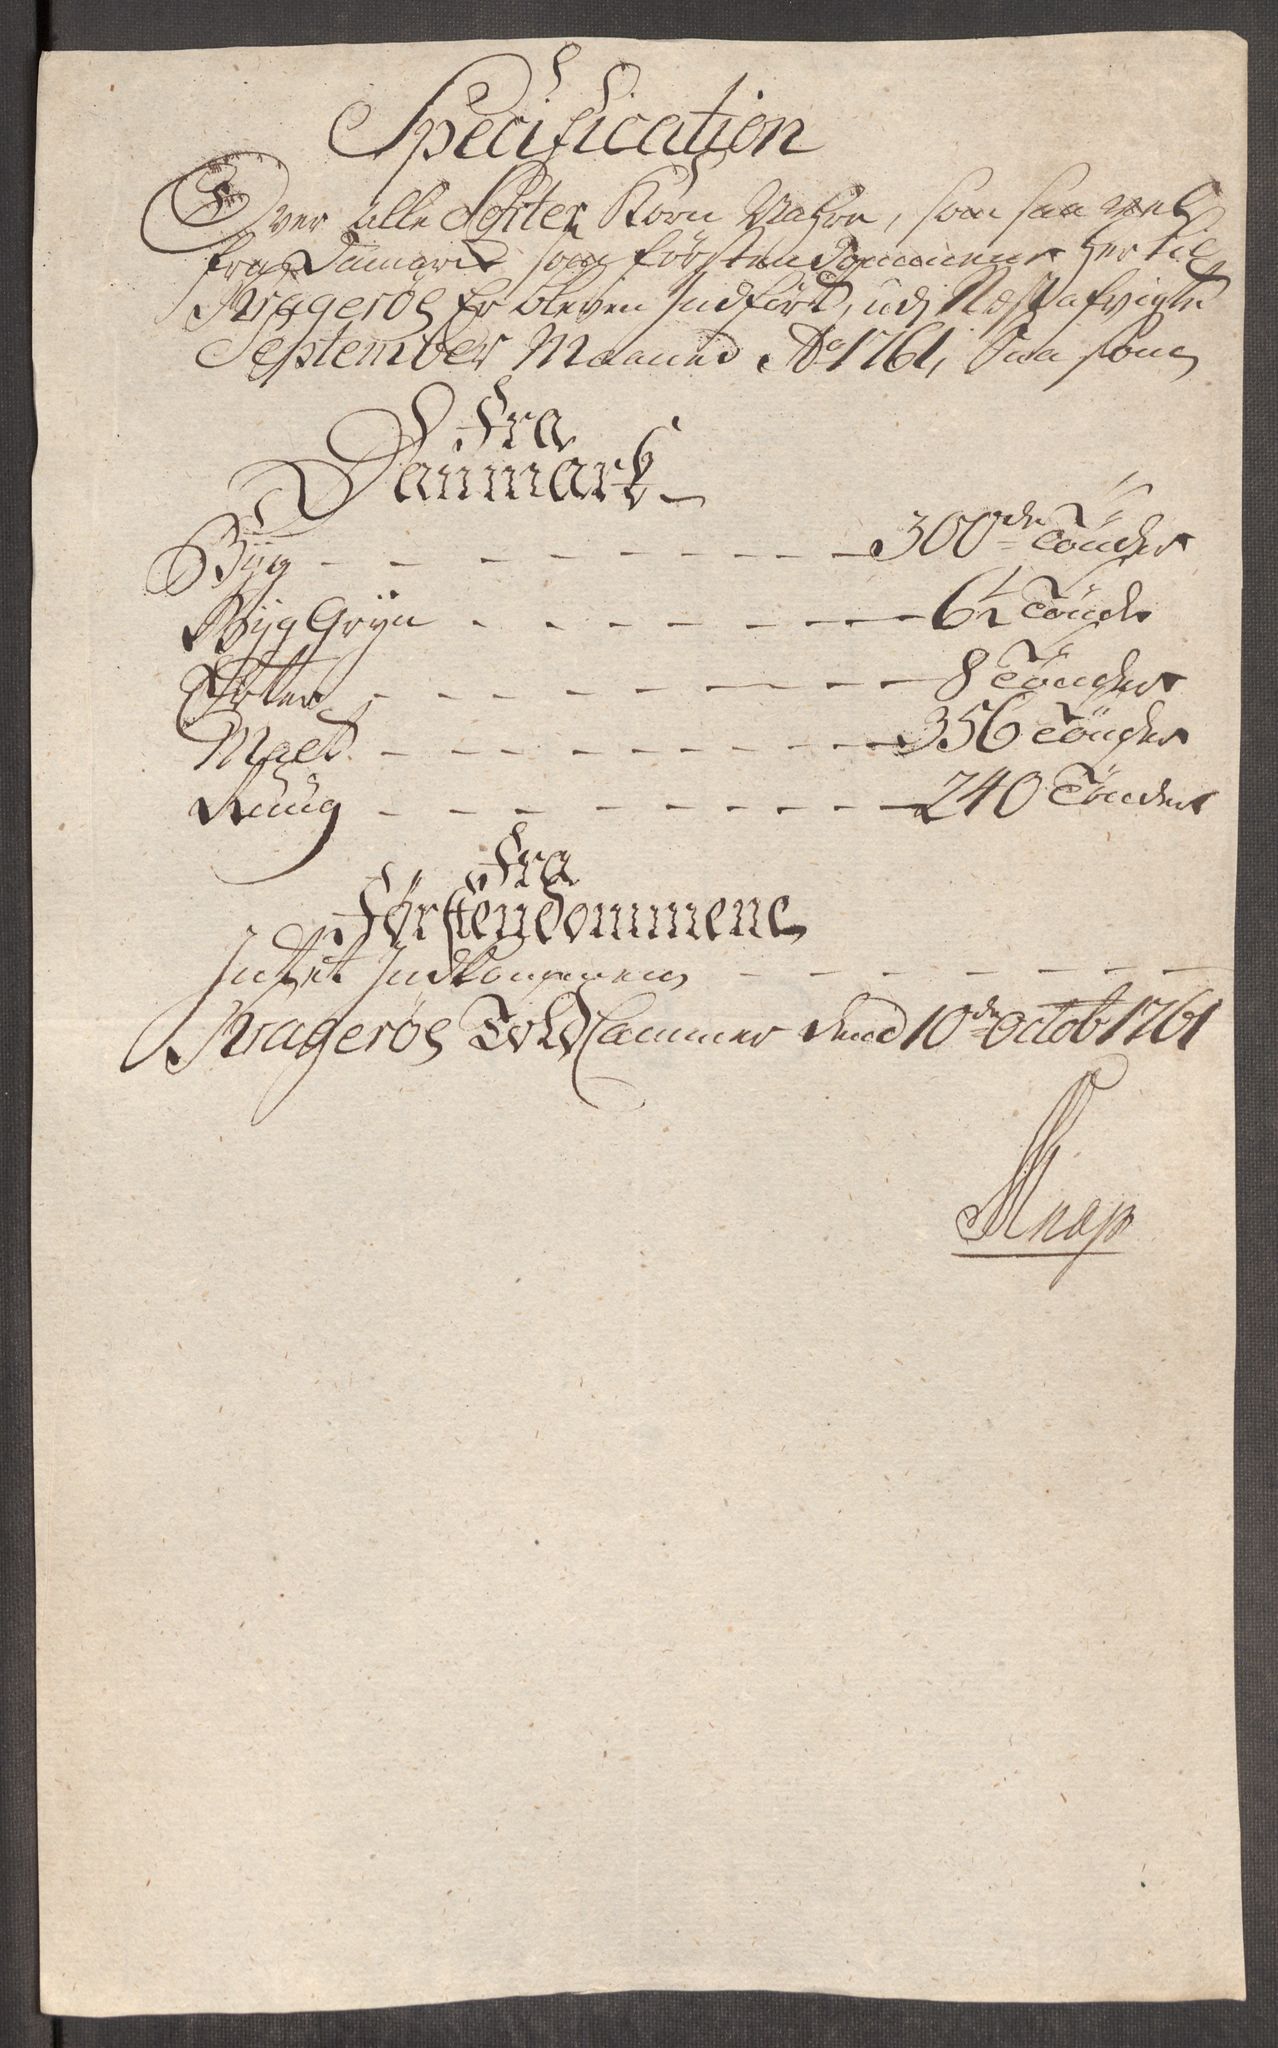 Specification
Over alle Sorter Korn Vahre, som saa vel
fra Danmark som Förstendommene her til
Kragerøe Er bleven Indfört, udj Næstafvigte
September Maaned Ao 1761, Saa som
Fra
Danmark
Byg - - - - - - - - 300de Tönder
Byg Gryn - - - - - - - - 6½ Tönde
Erter - - - - - - - - 8 Tönder
Malt - - - - - - - - 356 Tönder
Ruug - - - - - - - - 240 Tönder
Fra
Førstendommene
Intet Indkommen - - - - - - - -
Kragerøe Told Cammer dend 10de Octob 1761
Knap